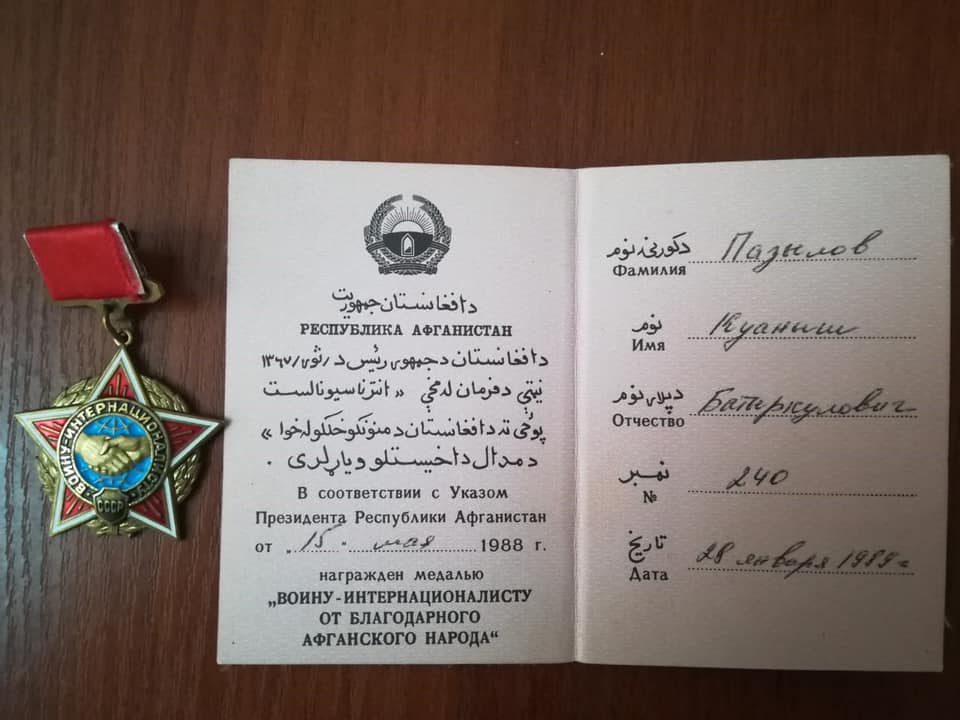 ВОИНУ-ИНТЕРНАЦИОНАЛИСТУ
СССР
دافغانستان جمهوریت
РЕСПУБЛИКА АФГАНИСТАН
دافغانستان دجمهوری رئیس د /ثور/ ۱۳۶۷
نیټې دفرمان له مخې «انترناسیونالست
پوځی ته دافغانستان دمننوکوونکوخلکو له خوا»
دمدال داخیستلو ویاړلری .
В соответствии с Указом
Президента Республики Афганистан
от „15“ мая 1988 г.
награжден медалью
„ВОИНУ-ИНТЕРНАЦИОНАЛИСТУ
ОТ БЛАГОДАРНОГО
АФГАНСКОГО НАРОДА“
دکورنۍ نوم
Фамилия Пазылов
نوم
Имя Куаныш
دپلار نوم
Отчество Батыркулович
نمبر
№ 240
تاریخ
Дата 28 января 1989 г